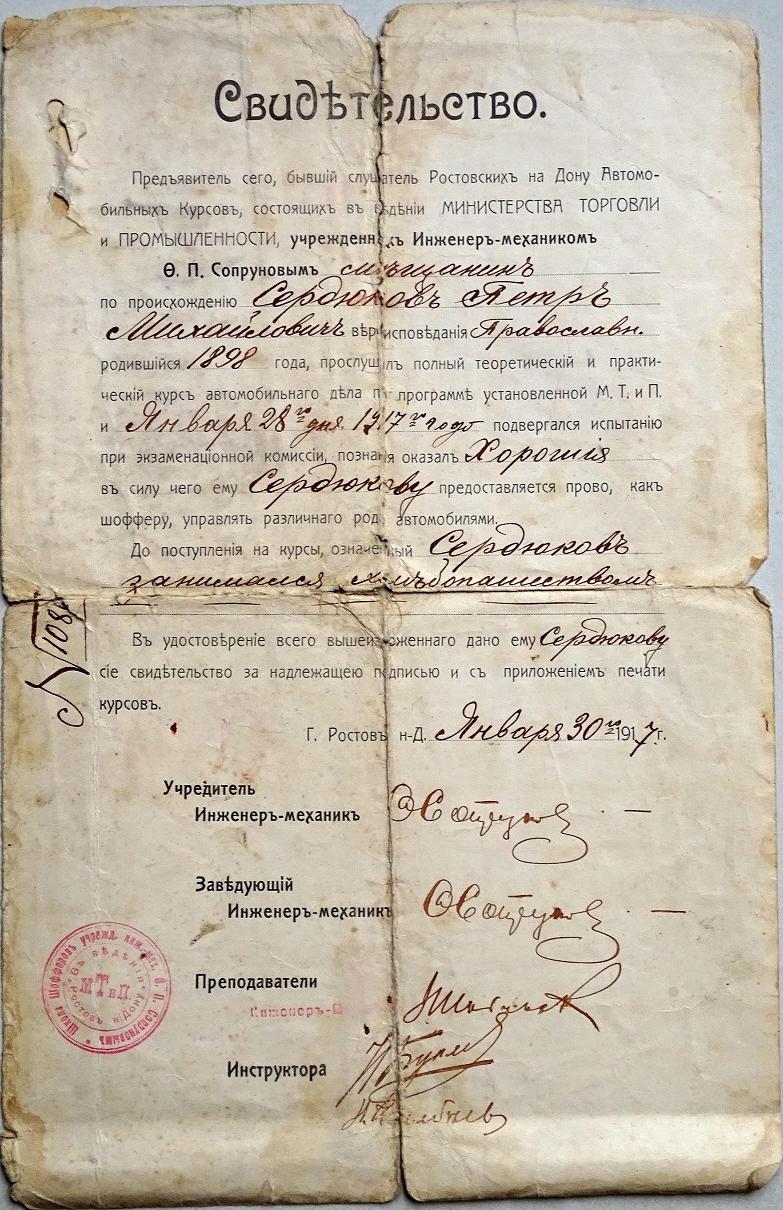 Свидѣтельство.
Предъявитель сего, бывшій слушатель Ростовскихъ на Дону Автомо-
бильныхъ Курсовъ, состоящихъ въ вѣдѣніи МИНИСТЕРСТВА ТОРГОВЛИ
и ПРОМЫШЛЕННОСТИ, учрежденныхъ Инженеръ-механикомъ
Ѳ. П. Сопруновымъ мѣщанинъ
по происхожденію Сердюковъ Петръ
Михайловичъ вѣроисповѣданія Православн.
родившійся 1898 года, прослушалъ полный теоретическій и практи-
ческій курсъ автомобильнаго дѣла по программѣ установленной М. Т. и П.
и Января 28го дня 1917го года подвергался испытанію
при экзаменаціонной комиссіи, познанія оказалъ Хорошія
въ силу чего ему Сердюкову предоставляется прово, какъ
шофферу, управлять различнаго рода автомобилями.
До поступленія на курсы, означенный Сердюковъ
занимался хлѣбопашествомъ
№ 108
Въ удостовѣреніе всего вышеизложеннаго дано ему Сердюкову
сіе свидѣтельство за надлежащею подписью и съ приложеніемъ печати
курсовъ.
Г. Ростовъ н-Д. Января 30го 1917 г.
Учредитель
Инженеръ-механикъ
Завѣдующій
Инженеръ-механикъ
Преподаватели
Инженеръ-
Инструктора
Школа Шофферовъ учрежд. инж.-мех. Ѳ. П. Сопруновымъ
Въ вѣдѣніи
М.Т. и П.
Ростовъ н/Дону